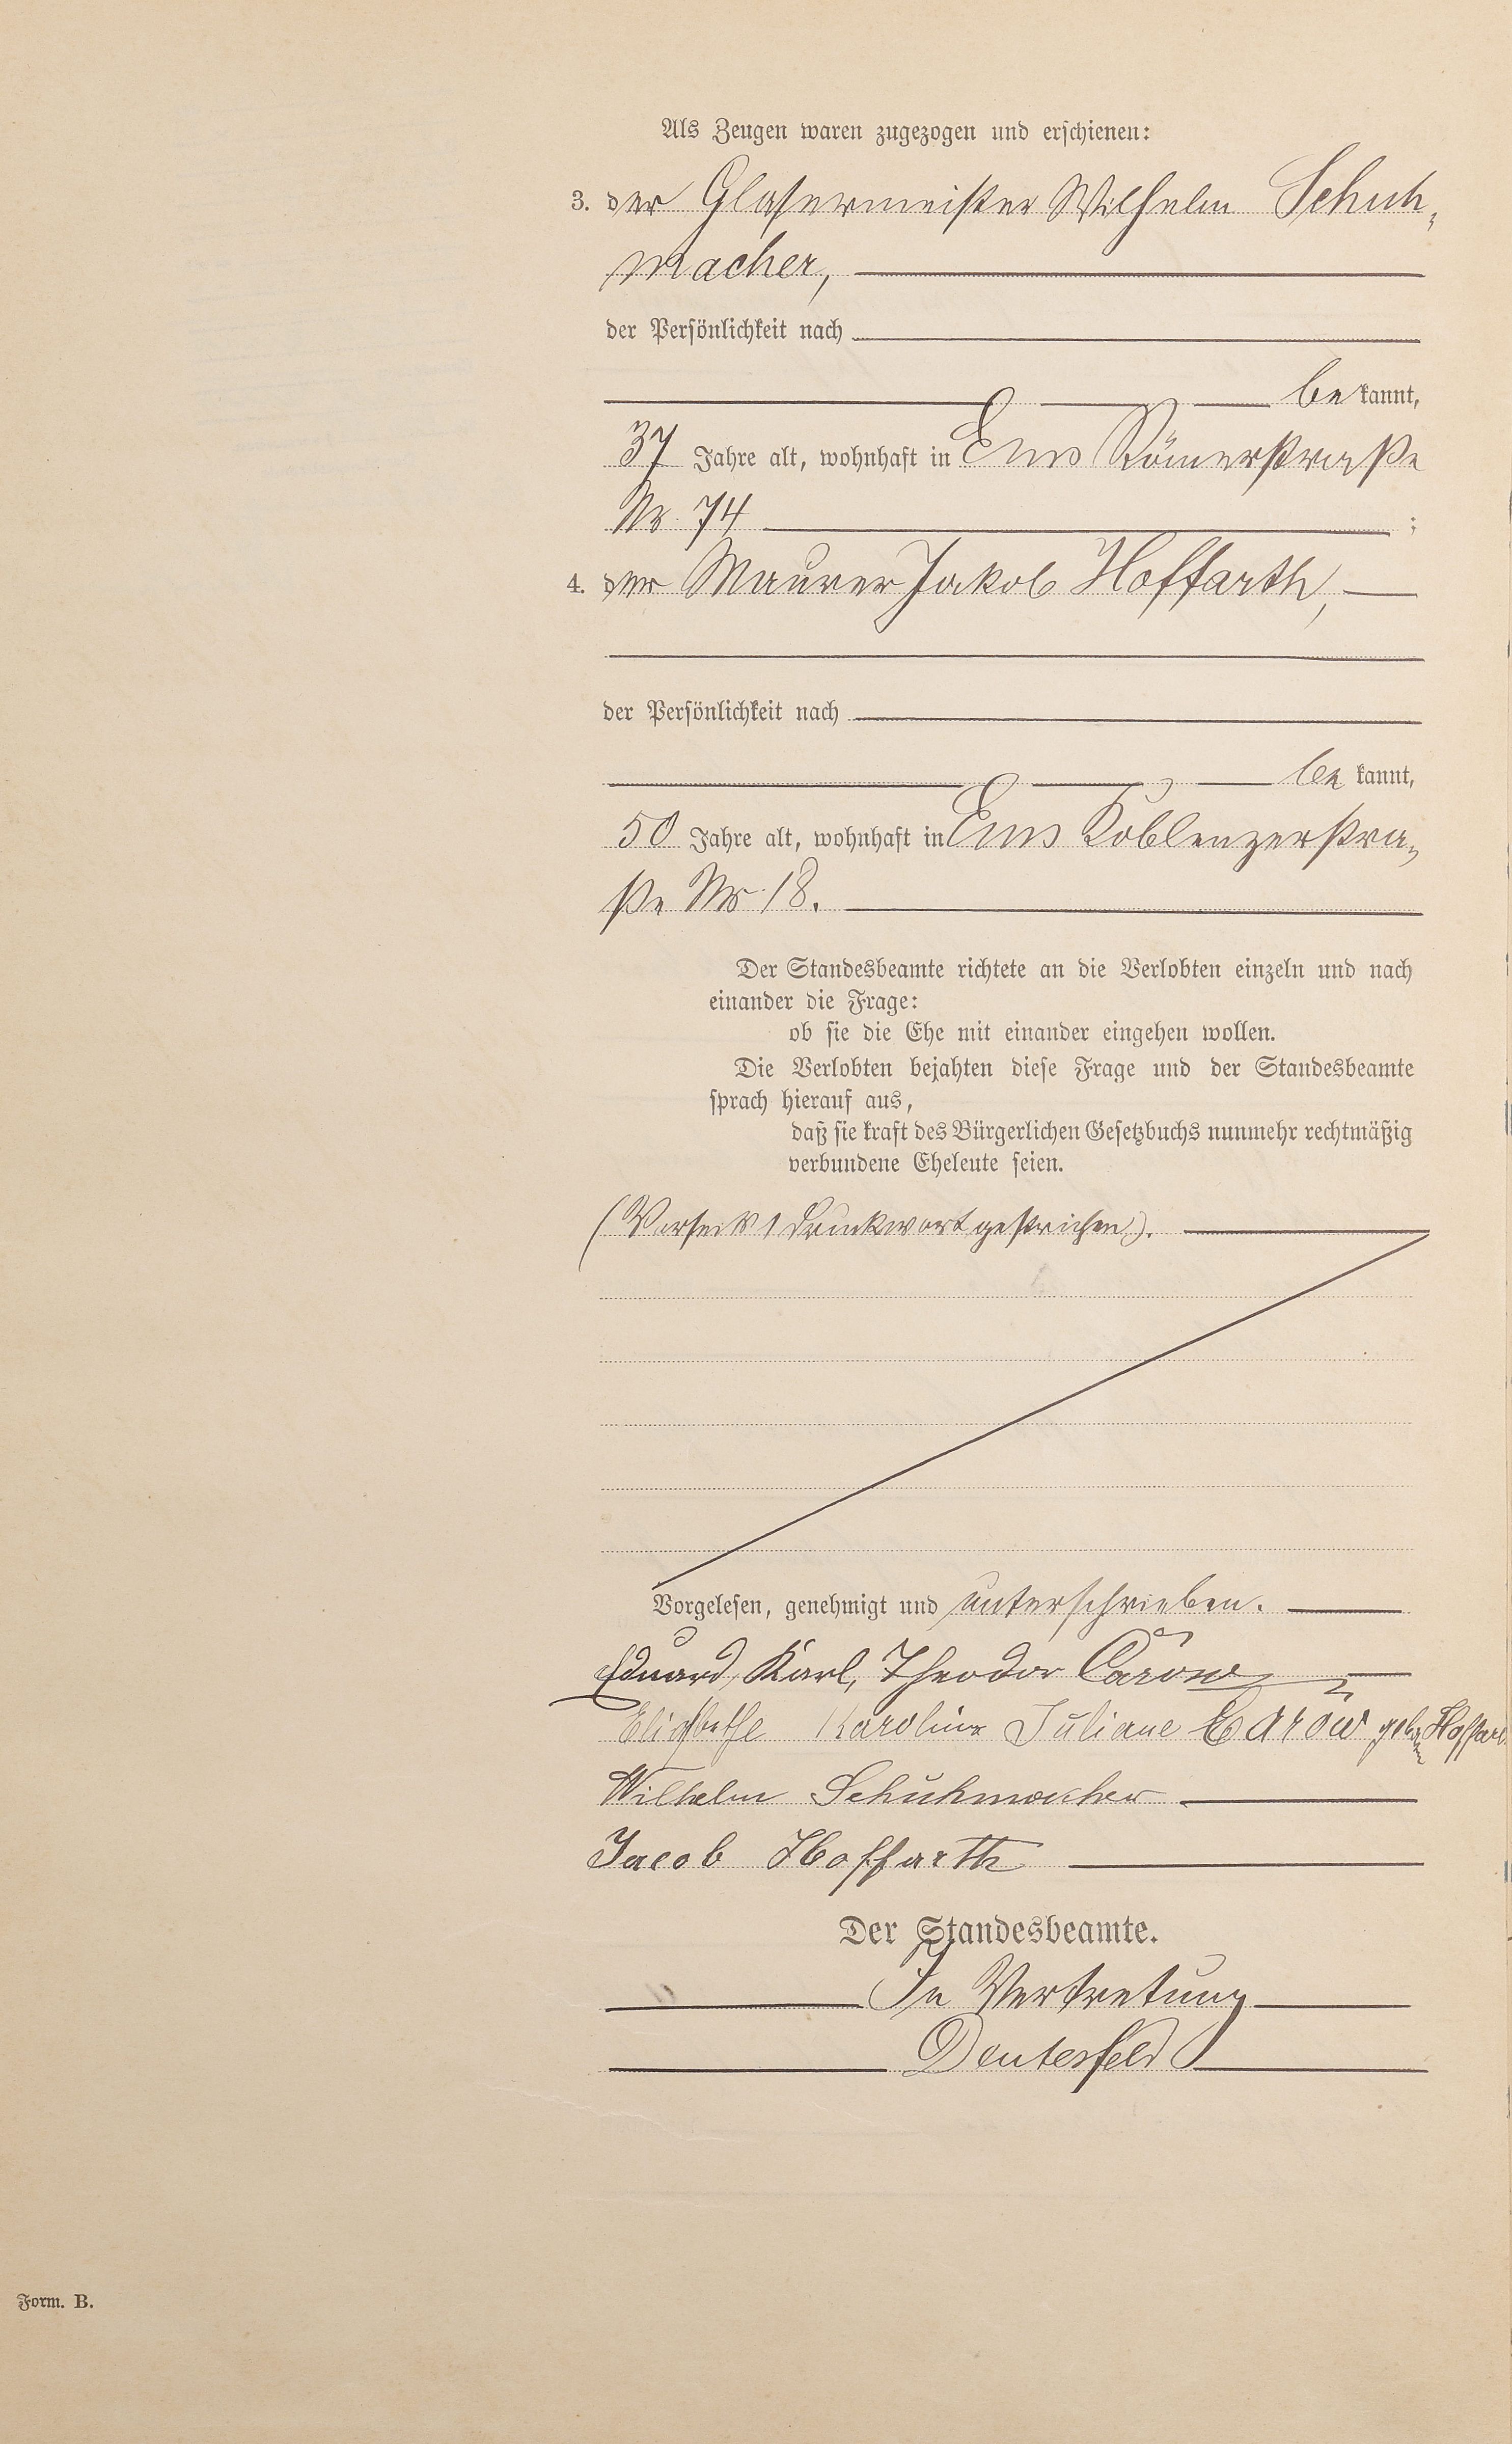 Als Zeugen waren zugezogen und erschienen:
3. der Glasermeister Wilhelm Schuh-
macher,
der Persönlichkeit nach
be kannt,
37 Jahre alt, wohnhaft in Ems Römerstraße
Nr. 74 ;
4. der Maurer Jakob Hoffarth,
der Persönlichkeit nach
be kannt,
50 Jahre alt, wohnhaft in Ems Koblenzerstra-
ße Nr. 18.
Der Standesbeamte richtete an die Verlobten einzeln und nach
einander die Frage:
ob sie die Ehe mit einander eingehen wollen.
Die Verlobten bejahten diese Frage und der Standesbeamte
sprach hierauf aus,
daß sie kraft des Bürgerlichen Gesetzbuchs nunmehr rechtmäßig
verbundene Eheleute seien.
(Vorseits 1 Druckwort gestrichen).
Vorgelesen, genehmigt und unterschrieben.
Eduard, Karl, Theodor Carow
Elisabethe Karoline Juliane Carow geb. Hoffart
Wilhelm Schuhmacher
Jacob Hoffarth
Der Standesbeamte.
In Vertretung
Deutesfeld
Form. B.